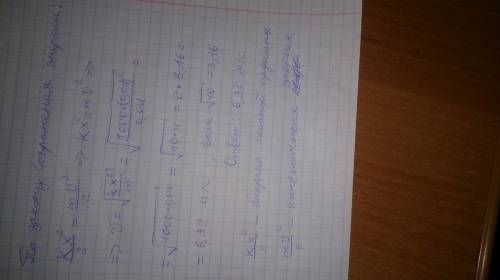 По закону сохранения энергии:
Kx²/2 = mv²/2 => Kx² = mv² =>
=> v = √(kx²/m) = √(1000·(0,02)²/0,01) =
= √(1000·0,04) = √(10·4) = 2·3,16 =
= 6,32 м/с, если √10 = 3,16
Ответ: 6,32 м/с
Kx²/2 – энергия сжатой пружины
mv²/2 – кинетическая энергия